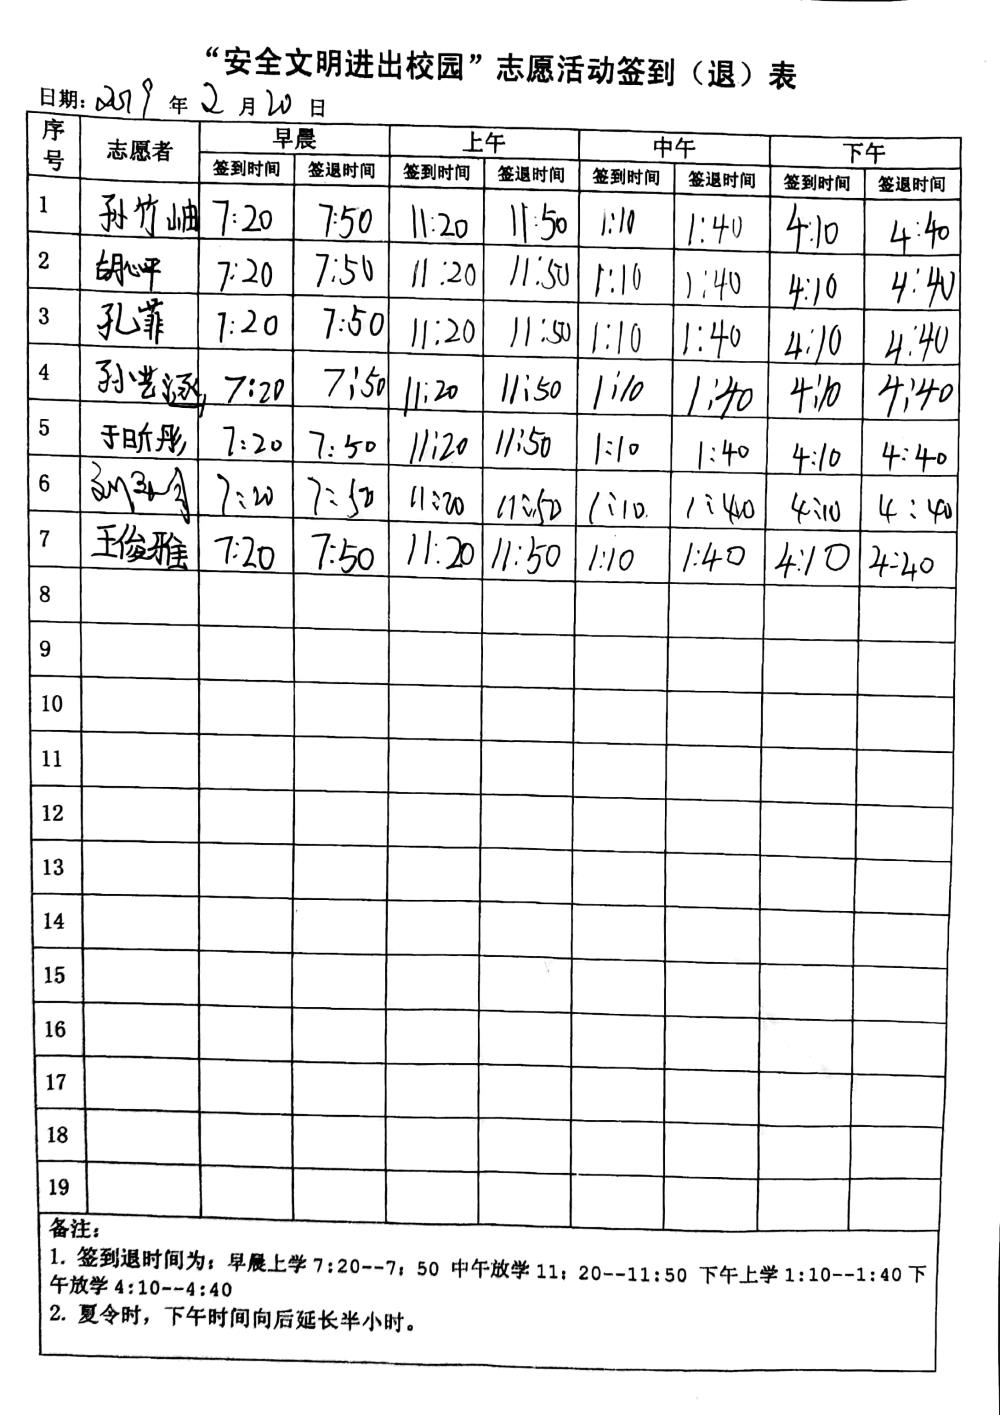 “安全文明进出校园”志愿活动签到（退）表
日期：2019年2月20日
序号 志愿者 早晨 上午 中午 下午
签到时间 签退时间 签到时间 签退时间 签到时间 签退时间 签到时间 签退时间
1 孙竹岫 7:20 7:50 11:20 11:50 1:10 1:40 4:10 4:40
2 胡心平 7:20 7:50 11:20 11:50 1:10 1:40 4:10 4:40
3 孔菲 7:20 7:50 11:20 11:50 1:10 1:40 4:10 4:40
4 孙艺涵 7:20 7:50 11:20 11:50 1:10 1:40 4:10 4:40
5 于昕彤 7:20 7:50 11:20 11:50 1:10 1:40 4:10 4:40
6 7:20 7:50 11:20 11:50 1:10. 1:40 4:10 4:40
7 王俊雅 7:20 7:50 11:20 11:50 1:10 1:40 4:10 4:40
8
9
10
11
12
13
14
15
16
17
18
19
备注：
1. 签到退时间为：早晨上学7:20--7：50 中午放学11：20--11:50 下午上学1:10--1:40下
午放学4:10--4:40
2. 夏令时，下午时间向后延长半小时。